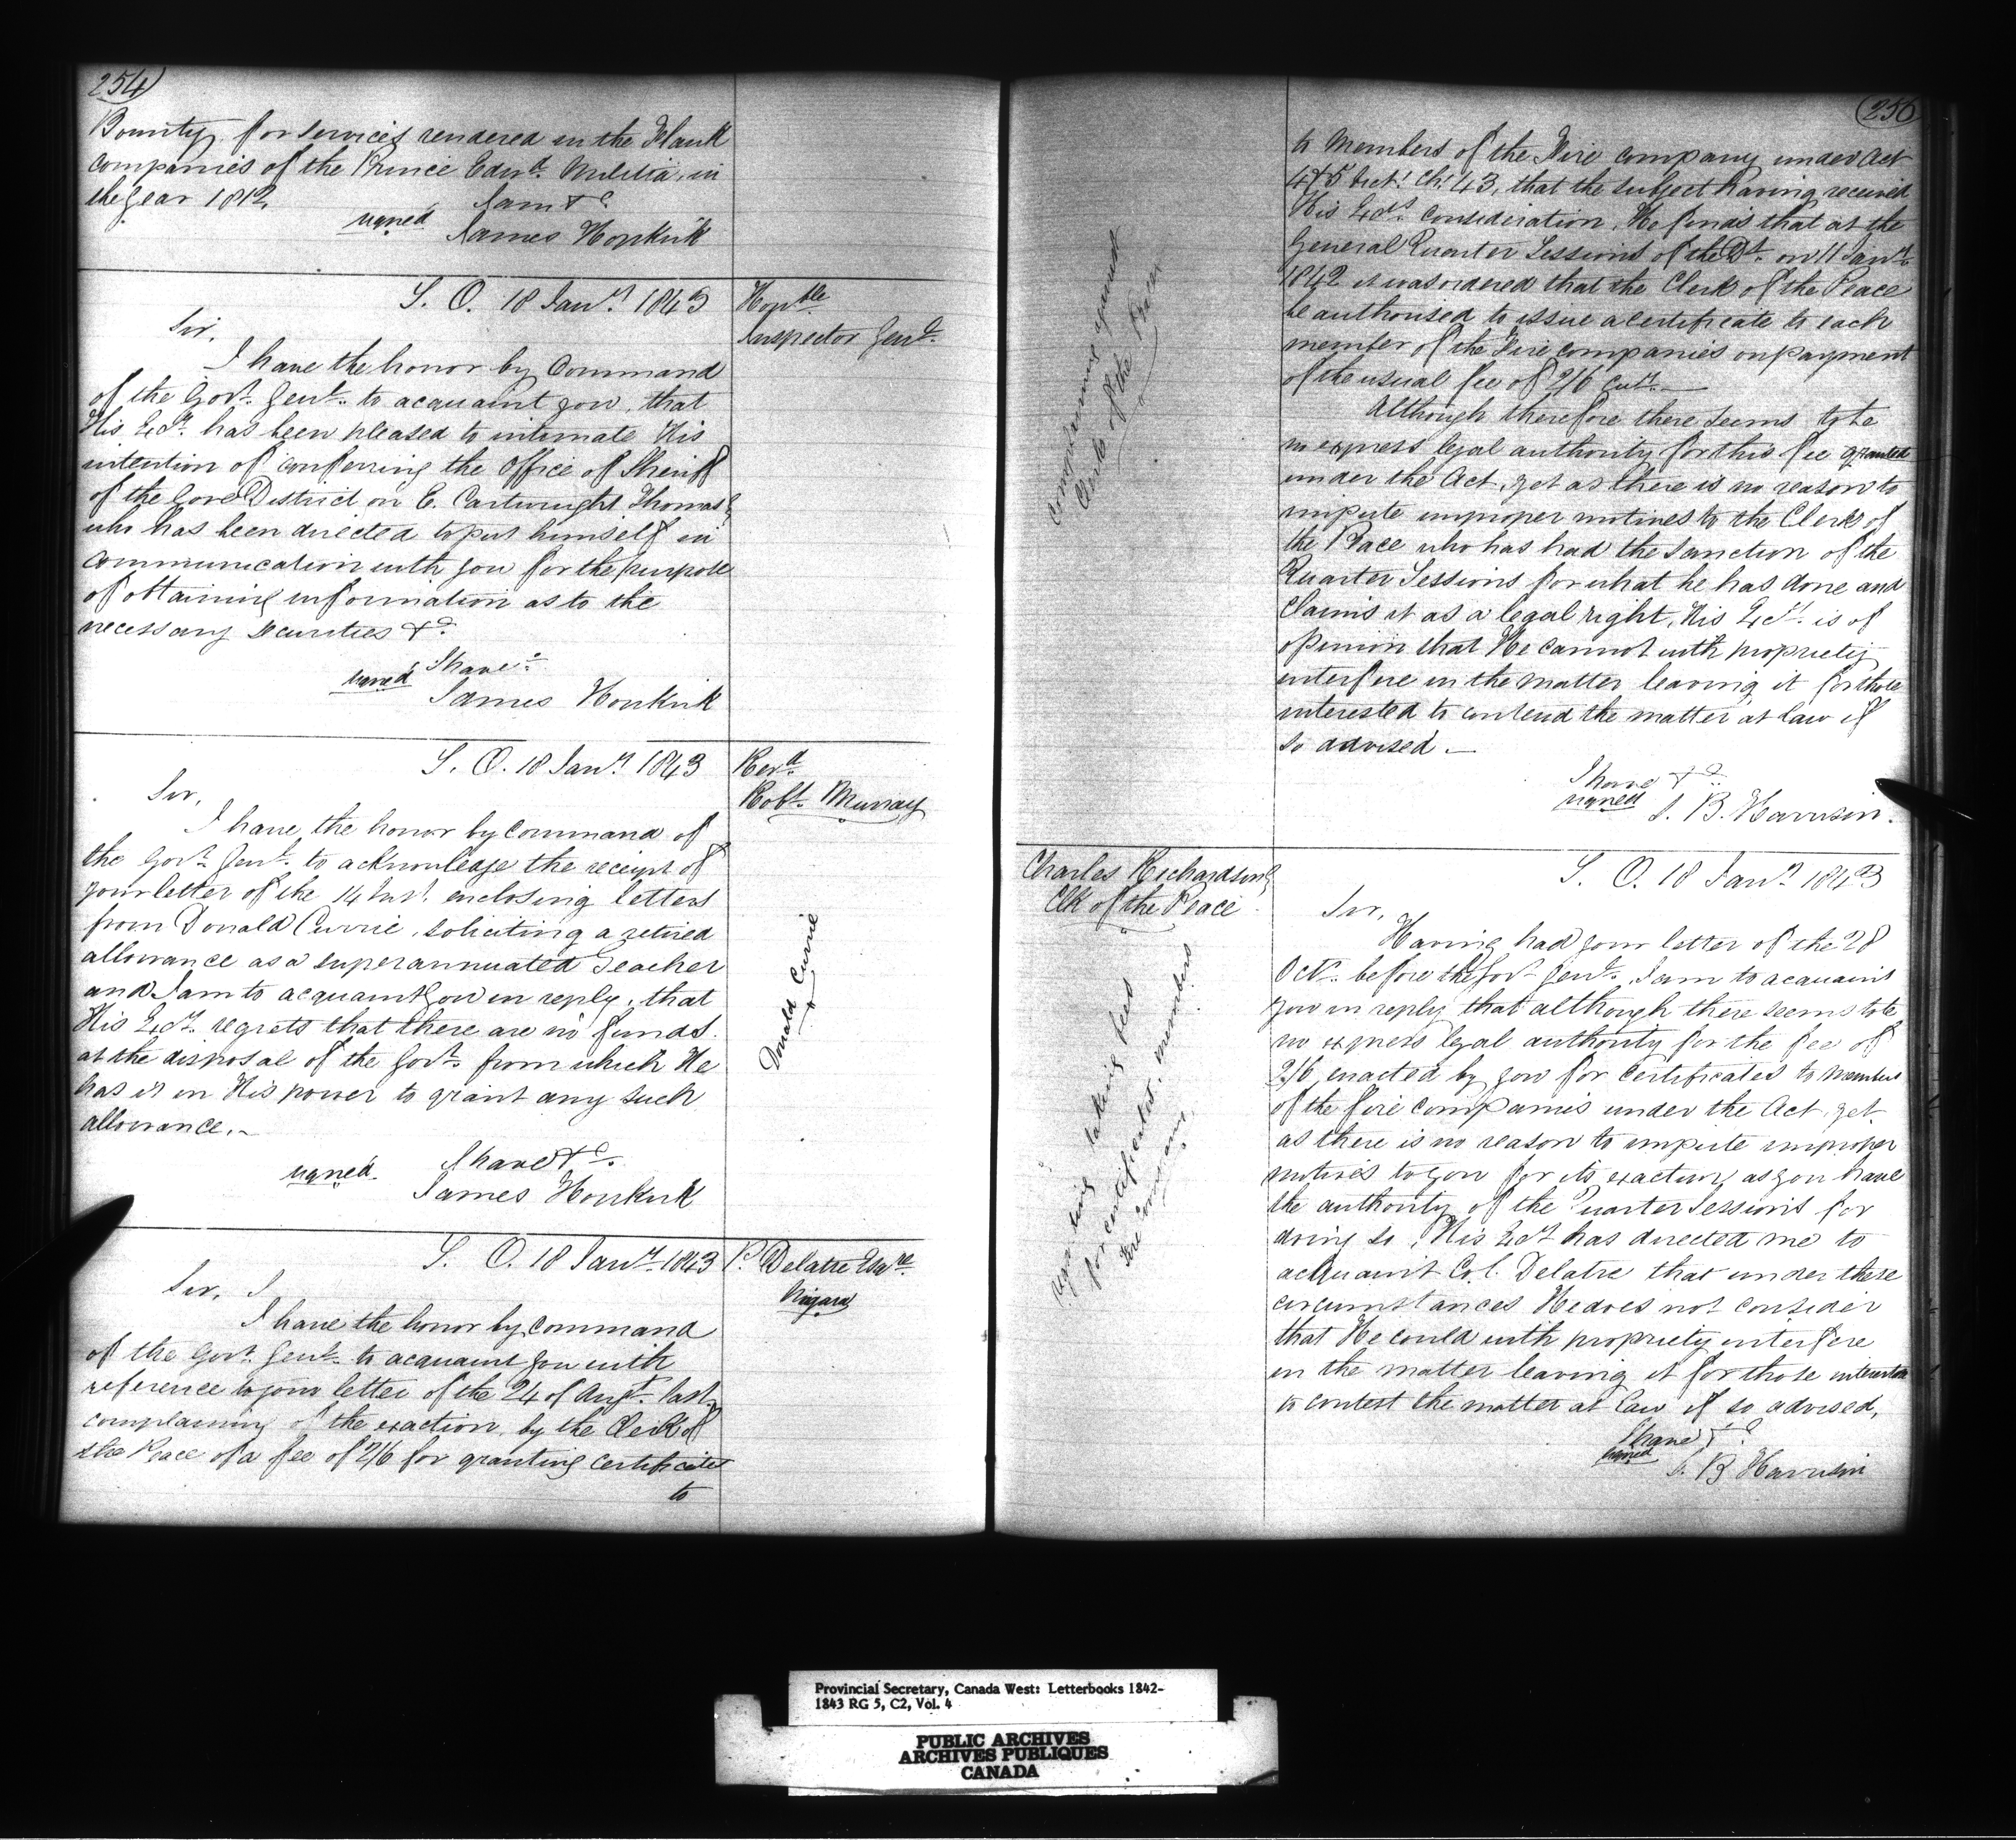 254
Bounty, for services rendered in the Flank
companies of the Prince Edwd. Militia, in
the year 1812.
I am &c
signed James Hopkirk
S. O. 18 Jany 1843
Honble
Inspector Genl.
Sir,
I have the honor by Command
of the Govr. Genl. to acquaint you, that
His Excy. has been pleased to intimate His
intention of conferring the Office of Sheriff
of the Gore District on E. Cartwright Thomas
who has been directed to put himself in
communication with you for the purpose
of obtaining information as to the
necessary Securities &c.
I have
signed James Hopkirk
S. O. 18 Jany 1843
Revd.
Robt. Murray
Sir,
I have the honor by command of
the Govr. Genl. to acknowledge the receipt of
your letter of the 14 Inst. enclosing letters
from Donald Currie, soliciting a retired
allowance as a superannuated Teacher
and I am to acquaint you in reply, that
His Excy. regrets that there are no funds
at the disposal of the Govt. from which He
has it in His power to grant any such
allowance.
Donald Currie
I have &c.
signed. James Hopkirk
S. O. 18 Jany. 1843
P. Delatre Esqre.
Niagara
Sir,
I have the honor by command
of the Govr. Genl. to acquaint you with
reference to your letter of the 24 of Augt. last,
complaining of the exaction, by the Clerk of
the Peace of a fee of 2/6 for granting certificates
to
255
to Members of the Fire company under Act
4 & 5 Vict. Ch. 43, that the subject having received
His Excys. consideration, He finds that at the
General Quarter Sessions of the Dt. on 11 Jany.
1842 it was ordered that the Clerk of the Peace
be authorised to issue a certificate to each
member of the Fire companies on payment
of the usual fee of 2/6 Cury.
Although therefore there seems to be
no express legal authority for this fee granted
under the Act, yet as there is no reason to
impute improper motives to the Clerk of
the Peace who has had the sanction of the
Quarter Sessions for what he has done and
claims it as a legal right, His Excy. is of
opinion that He cannot with propriety
interfere in the matter leaving it for those
interested to contend the matter at law if
so advised.
complaining against
Clerk of the Peace
I have &c.
signed S. B. Harrison.
S. O. 18 Jany 1843
Charles Richardson
Clk of the Peace
Sir,
Having had your letter of the 28
Octr. before the Govr. Genl. I am to acquaint
you in reply that although there seems to be
no express legal authority for the fee of
2/6 enacted by you for certificates to Members
of the fire companies under the Act, yet
as there is no reason to impute improper
motives to you for its exaction, as you have
the authority of the Quarter Sessions for
doing so, His Excy has directed me to
acquaint Col. Delatre that under these
circumstances He does not consider
that He could with propriety interfere
in the matter leaving it for those interested
to contest the matter at Law if so advised,
respecting taking fees
for certificates, members
Fire Company.
I have &c
signed S. B. Harrison
Provincial Secretary, Canada West: Letterbooks 1842-
1843 RG 5, C2, Vol. 4
PUBLIC ARCHIVES
ARCHIVES PUBLIQUES
CANADA